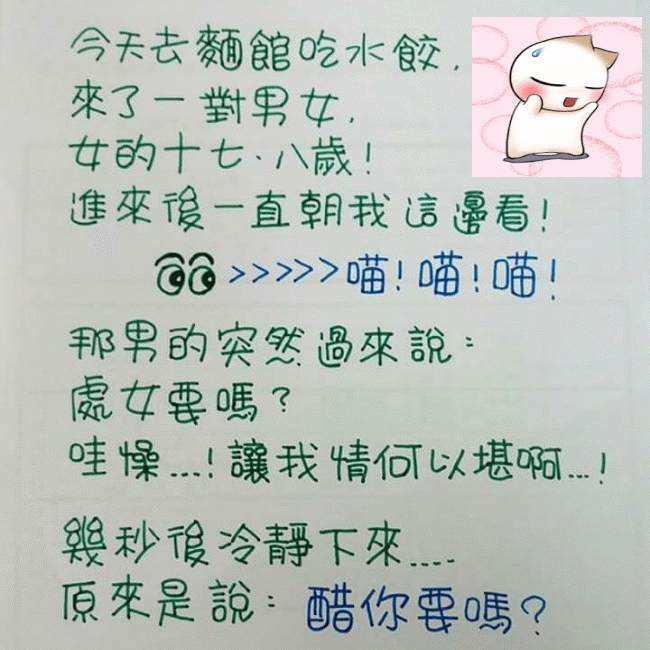 今天去麵館吃水餃，
來了一對男女，
女的十七、八歲！
進來後一直朝我這邊看！
>>>>>喵！喵！喵！
那男的突然過來說：
處女要嗎？
哇燥...！讓我情何以堪啊...！
幾秒後冷靜下來....
原來是說：醋你要嗎？